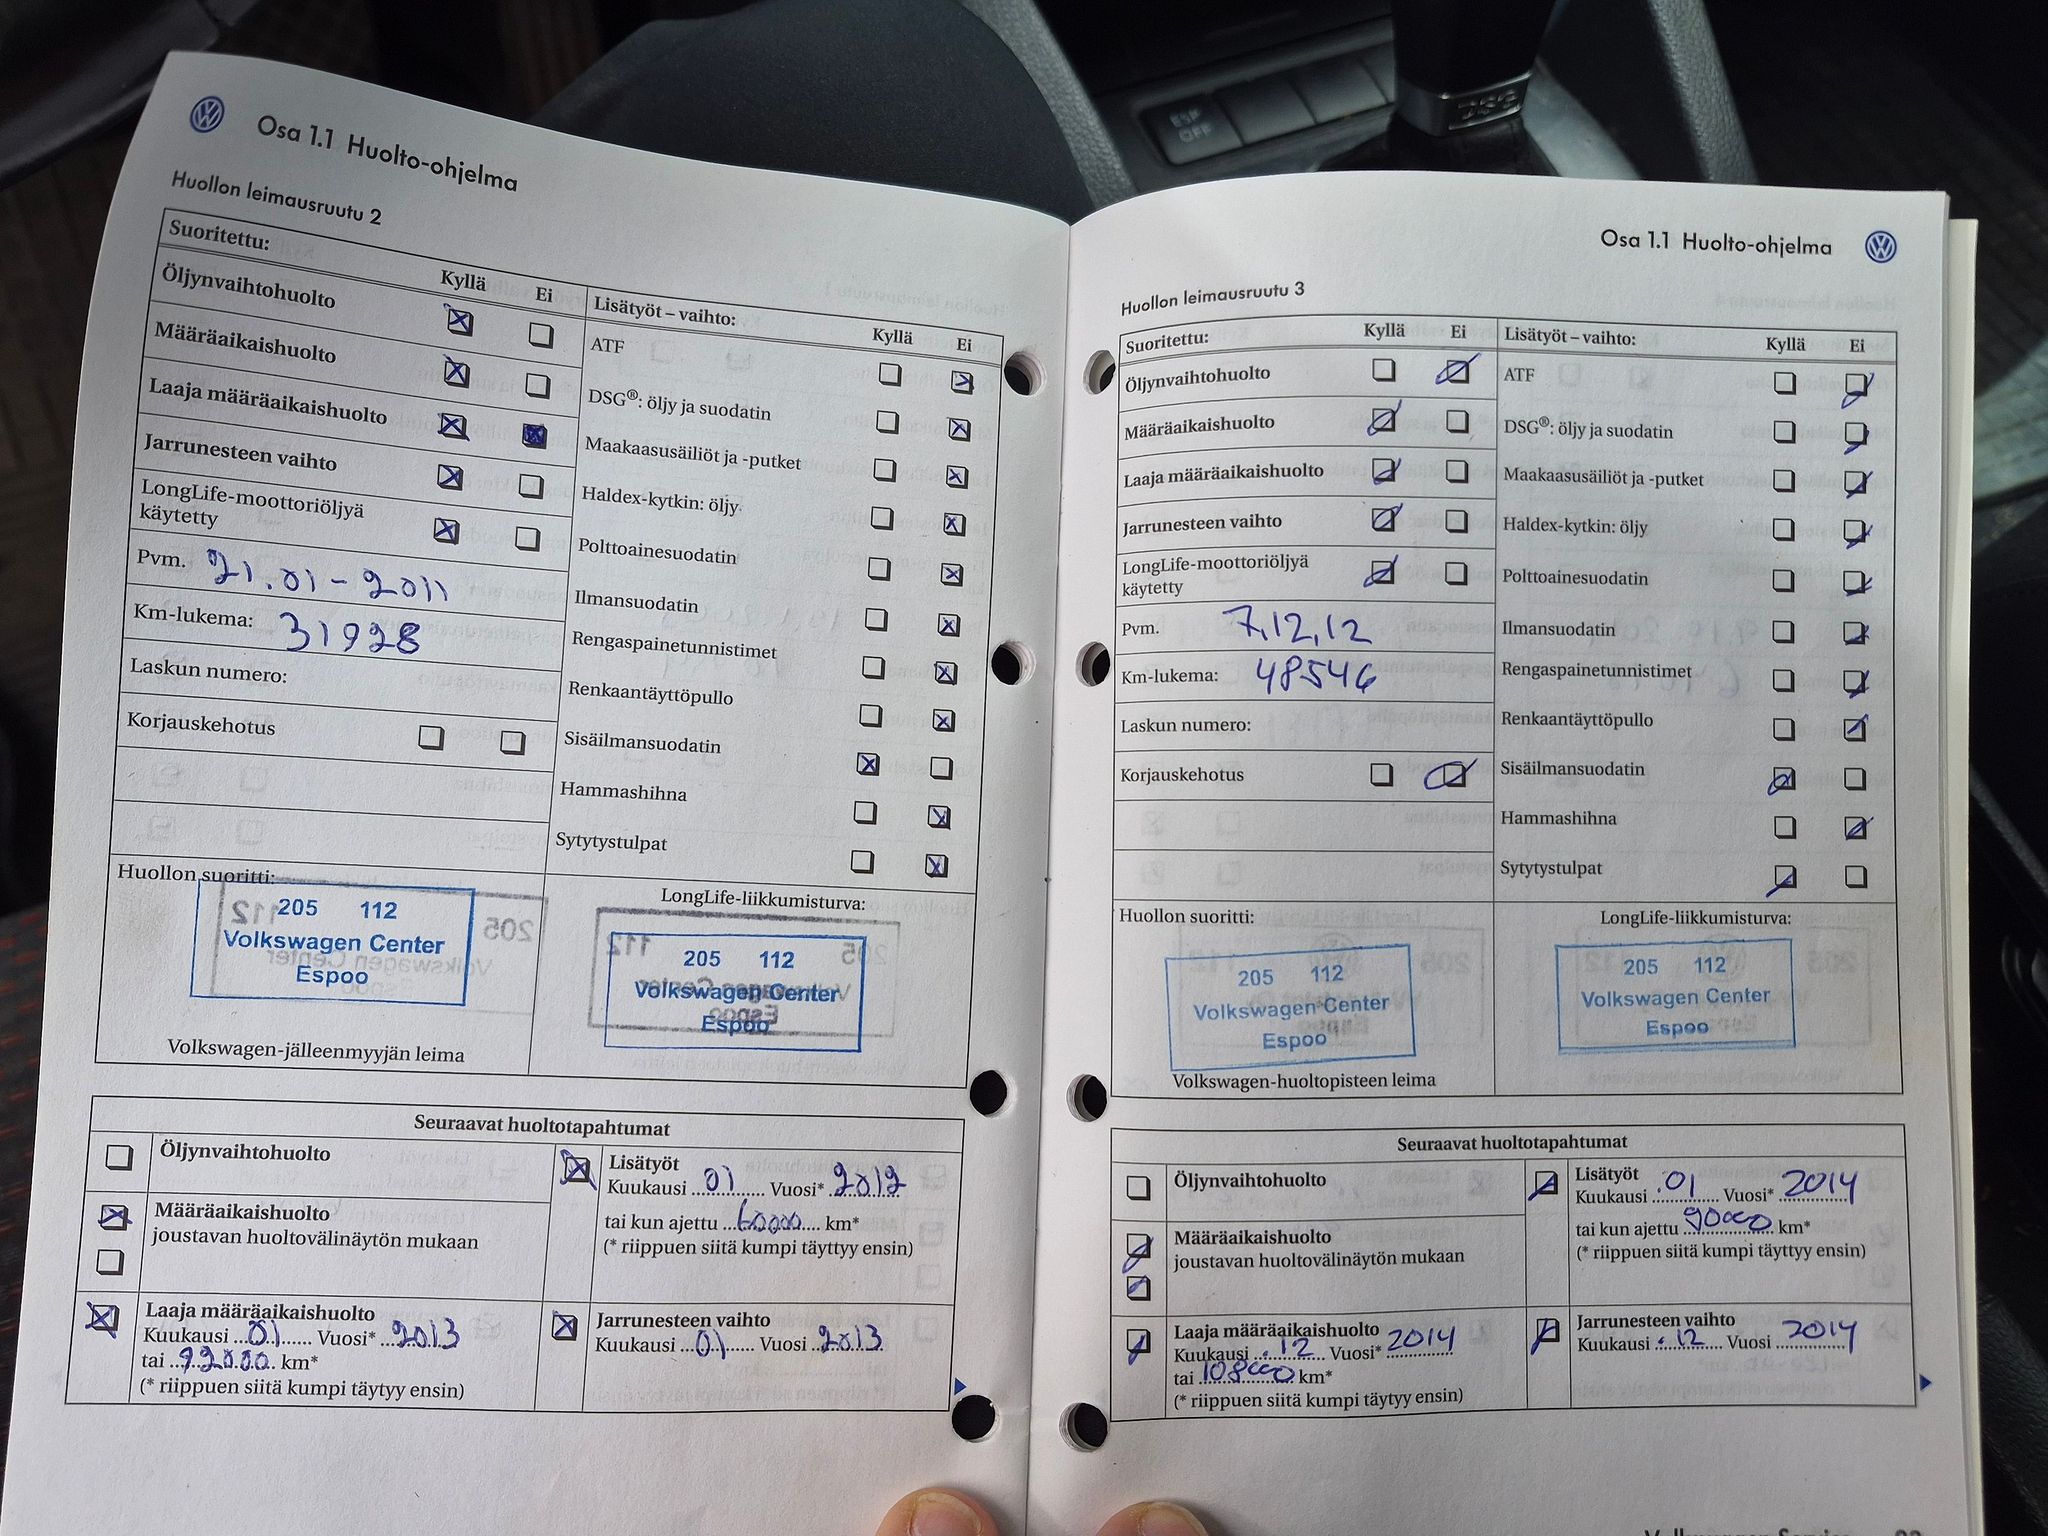 Osa 1.1 Huolto-ohjelma
Huollon leimausruutu 2
Suoritettu:
Kyllä Ei
Öljynvaihtohuolto
Määräaikaishuolto
Laaja määräaikaishuolto
Jarrunesteen vaihto
LongLife-moottoriöljyä
käytetty
Pvm. 21.01-2011
Km-lukema: 31928
Laskun numero:
Korjauskehotus
Lisätyöt – vaihto:
Kyllä Ei
ATF
DSG®: öljy ja suodatin
Maakaasusäiliöt ja -putket
Haldex-kytkin: öljy
Polttoainesuodatin
Ilmansuodatin
Rengaspainetunnistimet
Renkaantäyttöpullo
Sisäilmansuodatin
Hammashihna
Sytytystulpat
Huollon suoritti:
205 112
Volkswagen Center
Espoo
Volkswagen-jälleenmyyjän leima
LongLife-liikkumisturva:
205 112
Volkswagen Center
Espoo
Seuraavat huoltotapahtumat
Öljynvaihtohuolto
Määräaikaishuolto
joustavan huoltovälinäytön mukaan
Laaja määräaikaishuolto
Kuukausi 01 Vuosi* 2013
tai 92000 km*
(* riippuen siitä kumpi täytyy ensin)
Lisätyöt
Kuukausi 01 Vuosi* 2012
tai kun ajettu 60000 km*
(* riippuen siitä kumpi täyttyy ensin)
Jarrunesteen vaihto
Kuukausi 01 Vuosi 2013
Osa 1.1 Huolto-ohjelma
Huollon leimausruutu 3
Suoritettu:
Kyllä Ei
Öljynvaihtohuolto
Määräaikaishuolto
Laaja määräaikaishuolto
Jarrunesteen vaihto
LongLife-moottoriöljyä
käytetty
Pvm. 7,12,12
Km-lukema: 48546
Laskun numero:
Korjauskehotus
Lisätyöt – vaihto:
Kyllä Ei
ATF
DSG®: öljy ja suodatin
Maakaasusäiliöt ja -putket
Haldex-kytkin: öljy
Polttoainesuodatin
Ilmansuodatin
Rengaspainetunnistimet
Renkaantäyttöpullo
Sisäilmansuodatin
Hammashihna
Sytytystulpat
Huollon suoritti:
205 112
Volkswagen Center
Espoo
Volkswagen-huoltopisteen leima
LongLife-liikkumisturva:
205 112
Volkswagen Center
Espoo
Seuraavat huoltotapahtumat
Öljynvaihtohuolto
Määräaikaishuolto
joustavan huoltovälinäytön mukaan
Laaja määräaikaishuolto
Kuukausi 12 Vuosi* 2014
tai 108000 km*
(* riippuen siitä kumpi täytyy ensin)
Lisätyöt
Kuukausi 01 Vuosi* 2014
tai kun ajettu 90000 km*
(* riippuen siitä kumpi täyttyy ensin)
Jarrunesteen vaihto
Kuukausi 12 Vuosi 2014
ESP
OFF
DSG